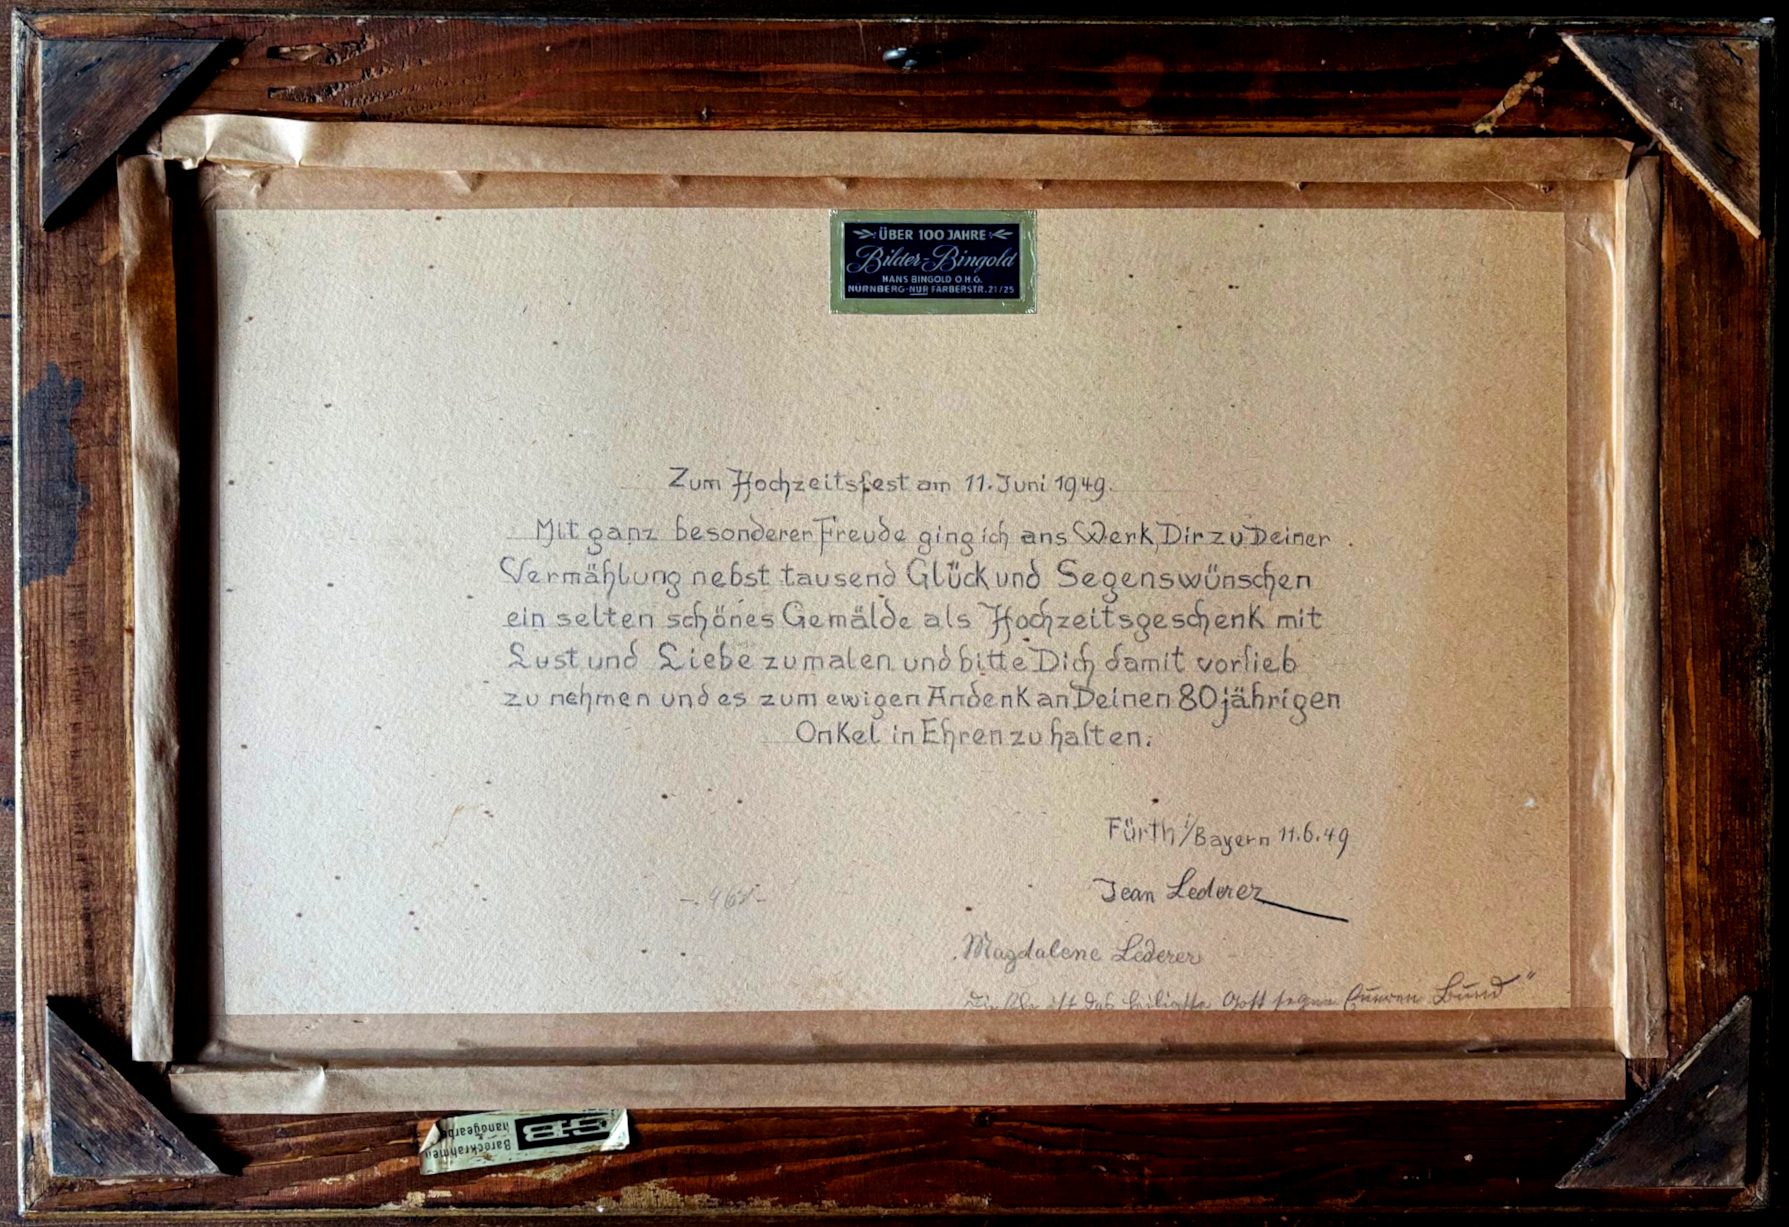 ÜBER 100 JAHRE
Bilder-Bingold
HANS BINGOLD O.H.G.
NÜRNBERG-NUR FÄRBERSTR. 21/25
Zum Hochzeitsfest am 11. Juni 1949.
Mit ganz besonderer Freude ging ich ans Werk, Dir zu Deiner
Vermählung nebst tausend Glück und Segenswünschen
ein selten schönes Gemälde als Hochzeitsgeschenk mit
Lust und Liebe zu malen und bitte Dich damit vorlieb
zu nehmen und es zum ewigen Andenk an Deinen 80 jährigen
Onkel in Ehren zu halten.
Fürth i/Bayern 11.6.49
Jean Lederer
Magdalene Lederer
Die Ehe ist das heiligste Gott segne Eueren Bund"
Barockrahmen